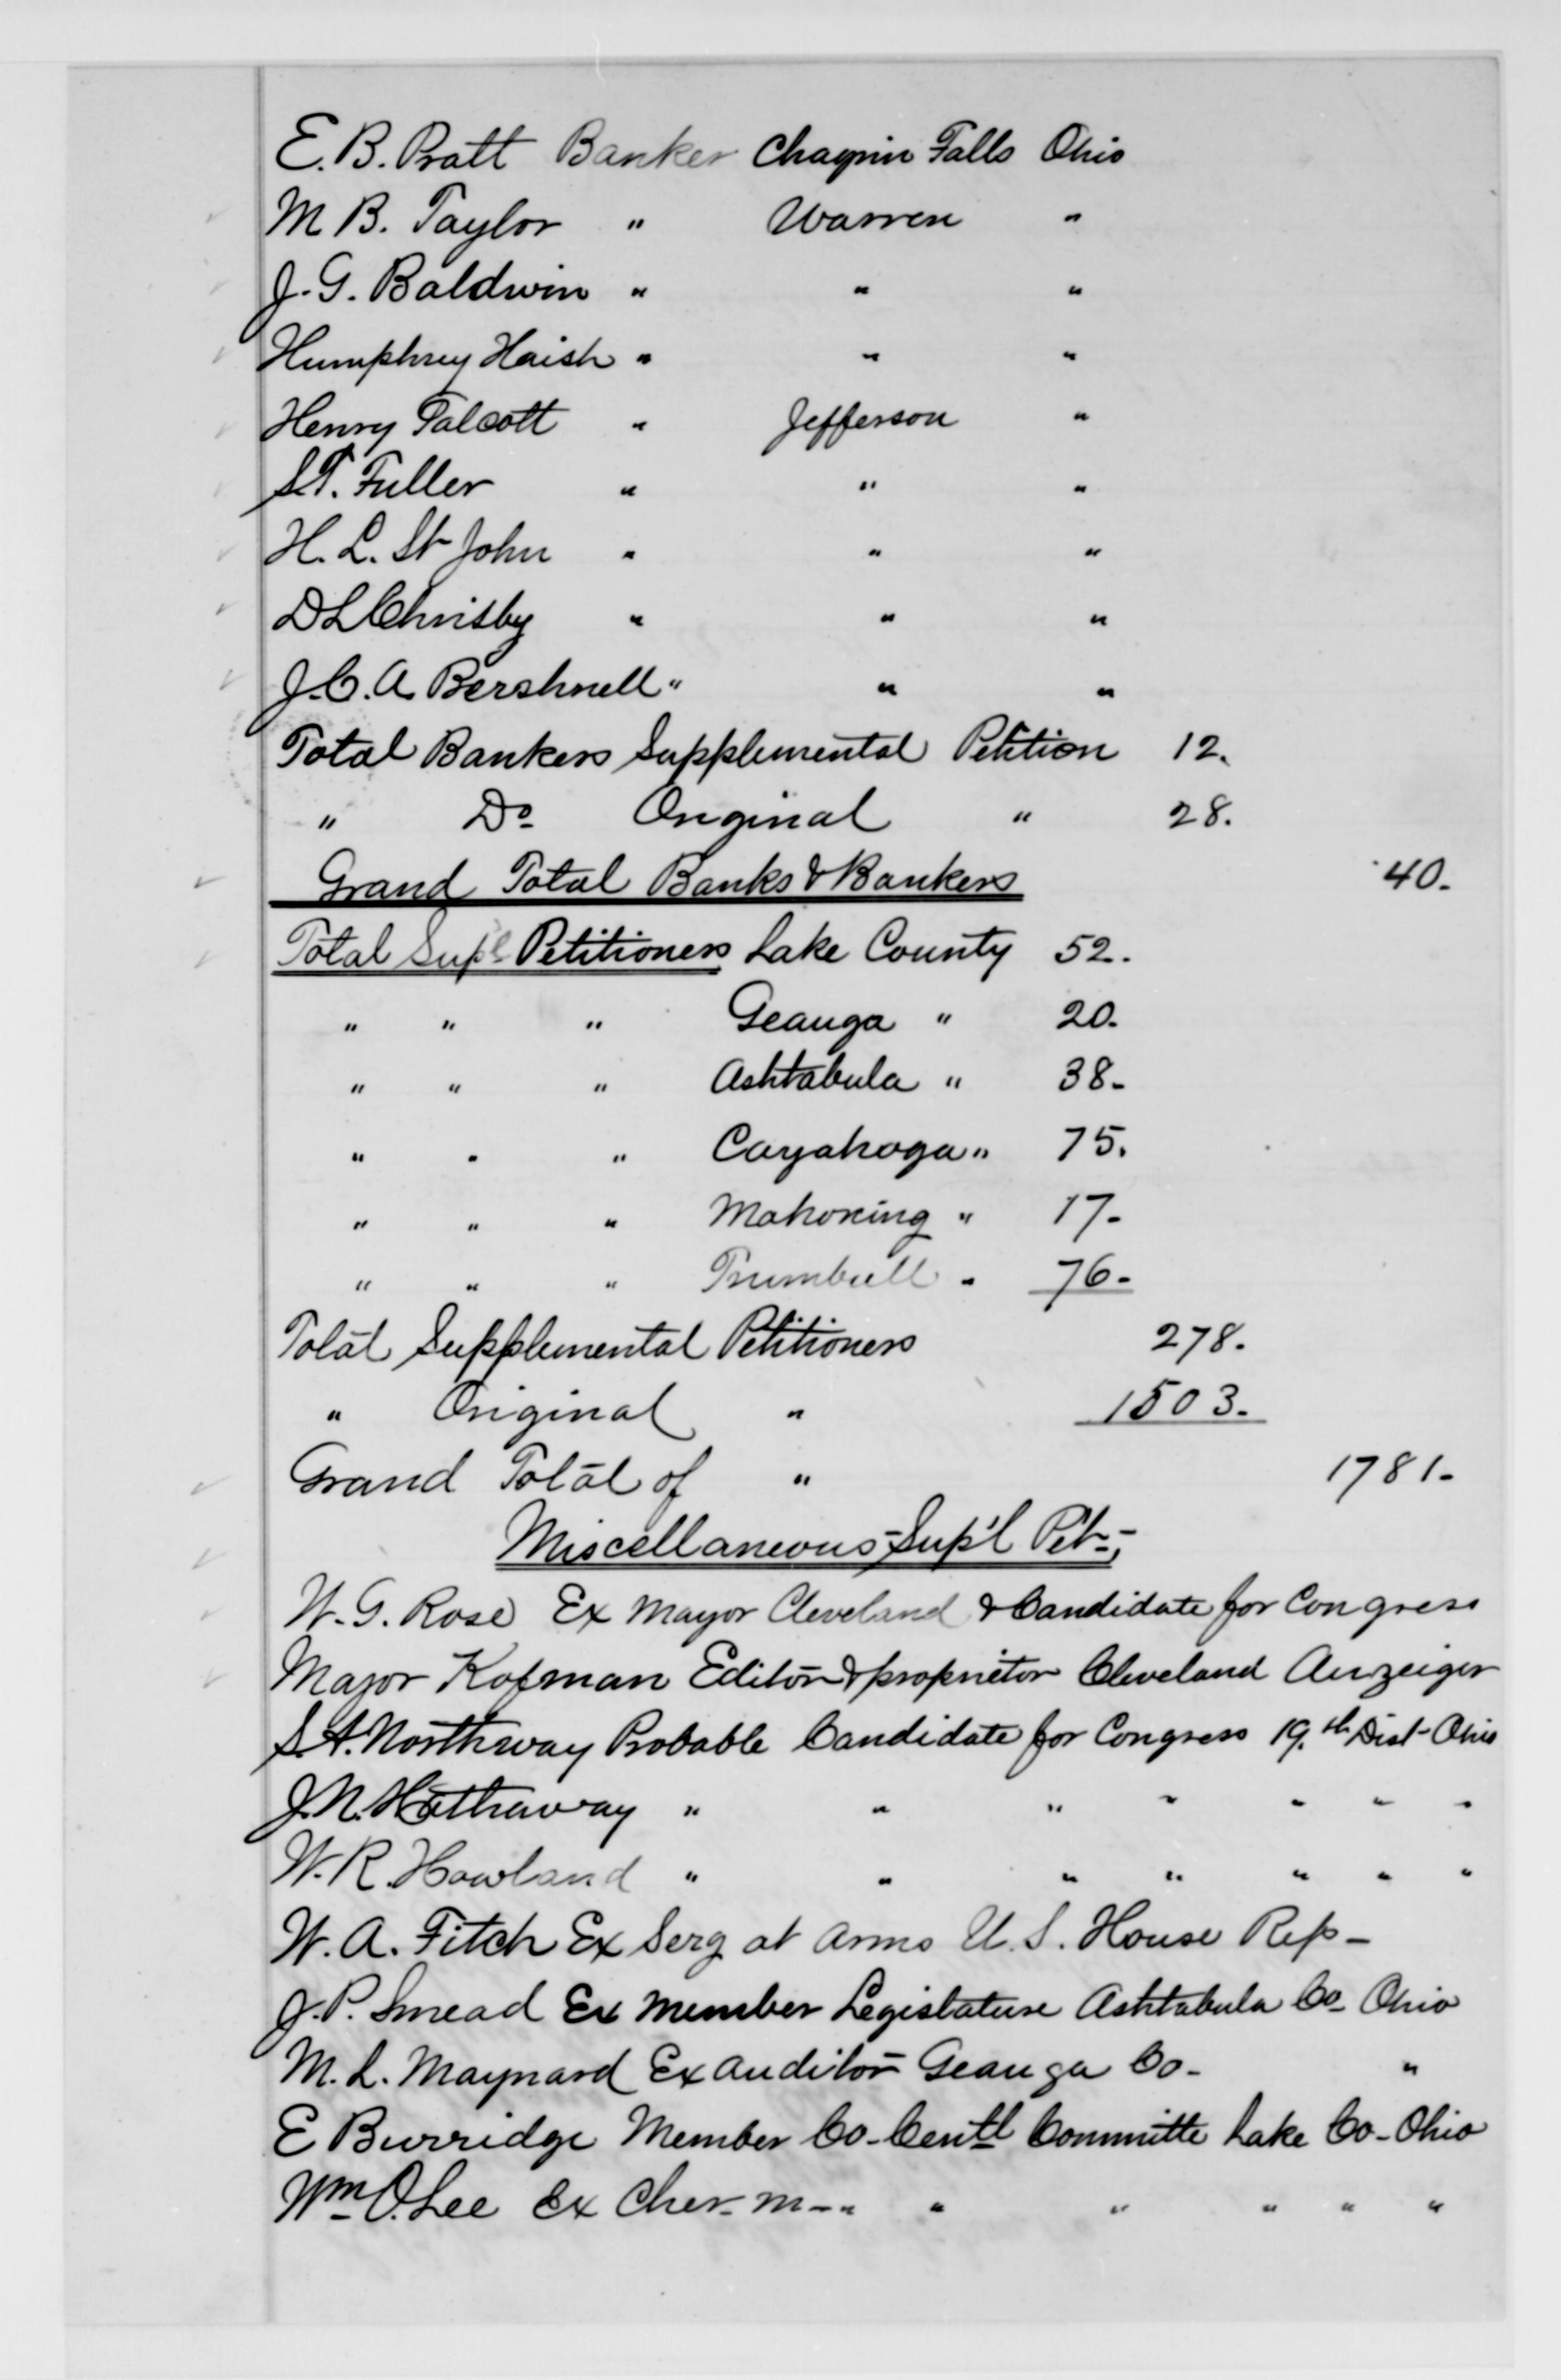 E. B. Pratt Banker Chagrin Falls Ohio
M B. Taylor " Warren "
J. G. Baldwin " " "
Humphrey Haish " " "
Henry Talcott " Jefferson "
S.T. Fuller " " "
H. L. St John " " "
D L Chrisby " " "
J. C. A Bershnell " " "
Total Bankers Supplemental Petition 12.
" Do Original " 28.
Grand Total Banks & Bankers 40.
Total Supl Petitioners Lake County 52.
" " " Geauga " 20.
" " " Ashtabula " 38-
" " " Cayahoga " 75.
" " " Mahoning " 17-
" " " Trumbull " 76-
Total Supplemental Petitioners 278.
" Original " 1503.
Grand Total of " 1781-
Miscellaneous-Sup'l Pet-;
W. G. Rose Ex Mayor Cleveland & Candidate for Congress
Major Kofman Editor & proprietor Cleveland Anzeiger
S. A. Northway Probable Candidate for Congress 19.th Dist- Ohio
J. N. Hathaway " " " " " " "
W. R. Howland " " " " " " "
W. A. Fitch Ex Serg at Arms U. S. House Reps-
J. P. Smead Ex Member Legislature Ashtabula Co- Ohio
M. L. Maynard Ex Auditor Geauga Co- "
E Burridge Member Co- Centl Committe Lake Co- Ohio
Wm O. Lee Ex Cher- m- " " " " " "